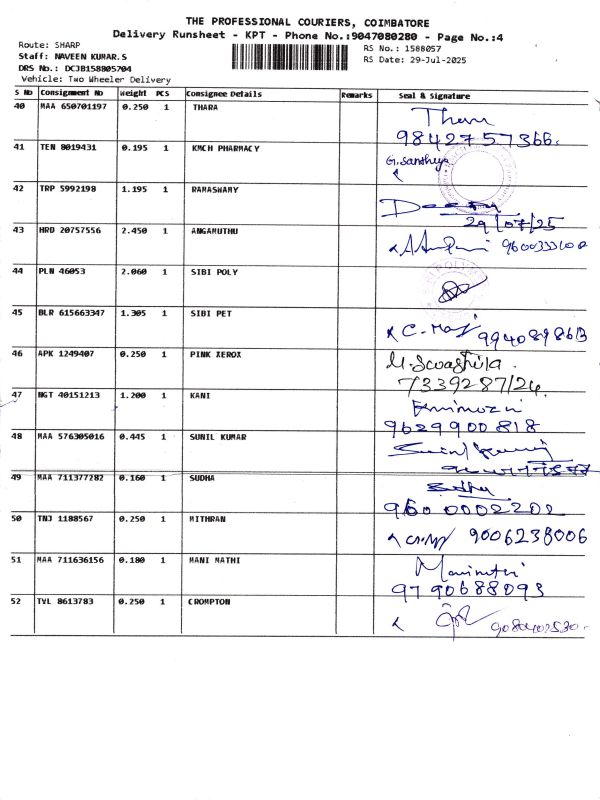 THE PROFESSIONAL COURIERS, COIMBATORE
Delivery Runsheet - KPT - Phone No.:9047080280 - Page No.:4
Route: SHARP
RS No.: 1588057
Staff: NAVEEN KUMAR.S
RS Date: 29-Jul-2025
DRS No.: DCJB158805704
Vehicle: Two Wheeler Delivery
S No Consignment No Weight PCS Consignee Details Remarks Seal & Signature
40 MAA 650701197 0.250 1 THARA
9842757366.
41 TEN 8019431 0.195 1 KMCH PHARMACY
G. Sandhiya
42 TRP 5992198 1.195 1 RAMASWAMY
29/07/25
43 HRD 20757556 2.450 1 ANGAMUTHU
44 PLN 46053 2.060 1 SIBI POLY
45 BLR 615663347 1.305 1 SIBI PET
46 APK 1249407 0.250 1 PINK XEROX
47 NGT 40151213 1.200 1 KANI
9629900818
48 MAA 576305016 0.445 1 SUNIL KUMAR
49 MAA 711377282 0.160 1 SUDHA
9600002202
50 TNJ 1188567 0.250 1 MITHRAN
9006238006
51 MAA 711636156 0.180 1 MANI MATHI
9790688093
52 TVL 8613783 0.250 1 CROMPTON